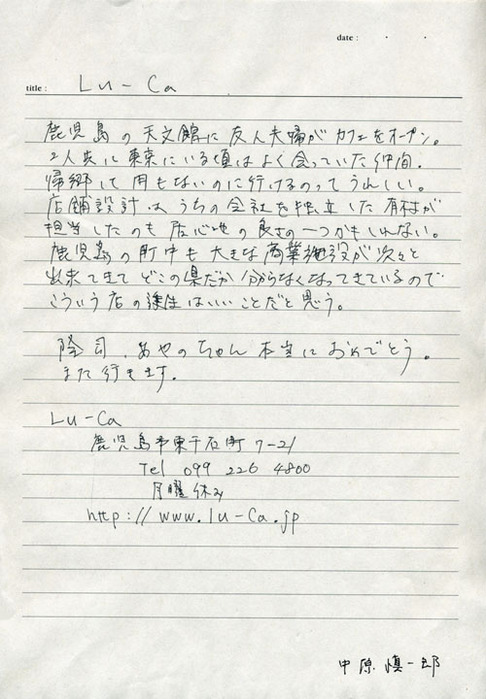 date : ・ ・
title : Lu-Ca
鹿児島の天文館に友人夫婦がカフェをオープン。
2人共に東京にいる頃はよく会っていた仲間。
帰郷して用もないのに行けるのってうれしい。
店舗設計は、うちの会社を独立した有村が
担当したのも居心地の良さの一つかもしれない。
鹿児島の町中も大きな商業施設が次々と
出来てきてどこの県だか分からなくなってきているので
こういう店の誕生はいいことだと思う。
隆司、あやのちゃん本当におめでとう。
また行きます。
Lu-Ca
鹿児島市東千石町 7-21
Tel 099 226 4800
月曜休み
http://www.lu-ca.jp
中原慎一郎